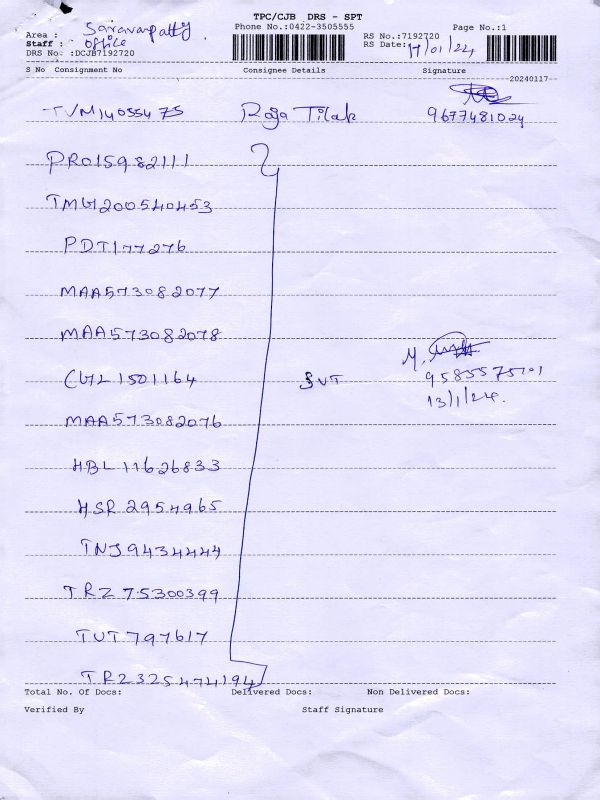 TPC/CJB DRS - SPT
Area : Saravanpatty Phone No.:0422-3505555 Page No.:1
Staff : office RS No.:7192720
DRS No. :DCJB7192720 RS Date: 17/01/24
S No Consignment No Consignee Details Signature
20240117
TVM14055475 Raja Tilak 9677481024
PRO15982111
TMG1200540453
PDT177276
MAA573082077
MAA573082078 M.
CGL1501164 SVT 9585575701
13/1/24.
MAA573082076
HBL11626833
HSR2954965
TNJ9434444
TRZ75300399
TUT797617
TRZ325474194
Total No. Of Docs: Delivered Docs: Non Delivered Docs:
Verified By Staff Signature